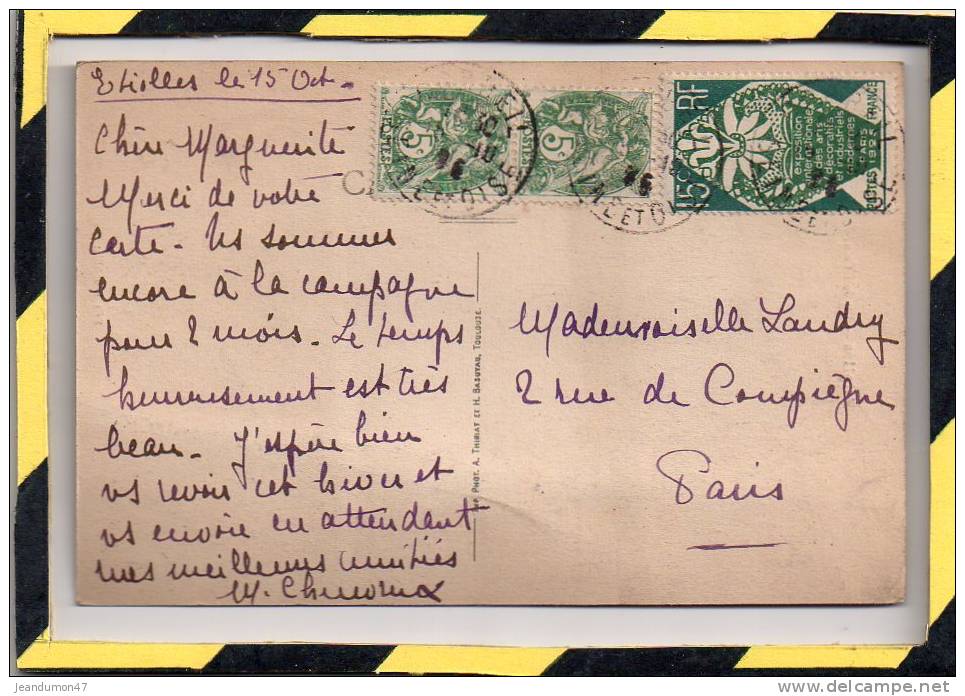 Etiolles le 15 Oct.
Chère Marguerite
Merci de votre
carte. Ns sommes
encore à la campagne
pour 2 mois. Le temps
heureusement est très
beau. J'espère bien
vs revoir cet hiver et
vs envoie en attendant
mes meilleures amitiés
M.
Mademoiselle Landry
2 rue de Compiègne
Paris
IMP. PHOT. A. THIRIAT ET H. BASUYAU, TOULOUSE.
5c
5c
15c RF
exposition
internationale
des arts
décoratifs
industriels
modernes
PARIS
1925
POSTES FRANCE
ET OISE
ET OISE
jeandumon47
delcampe.net